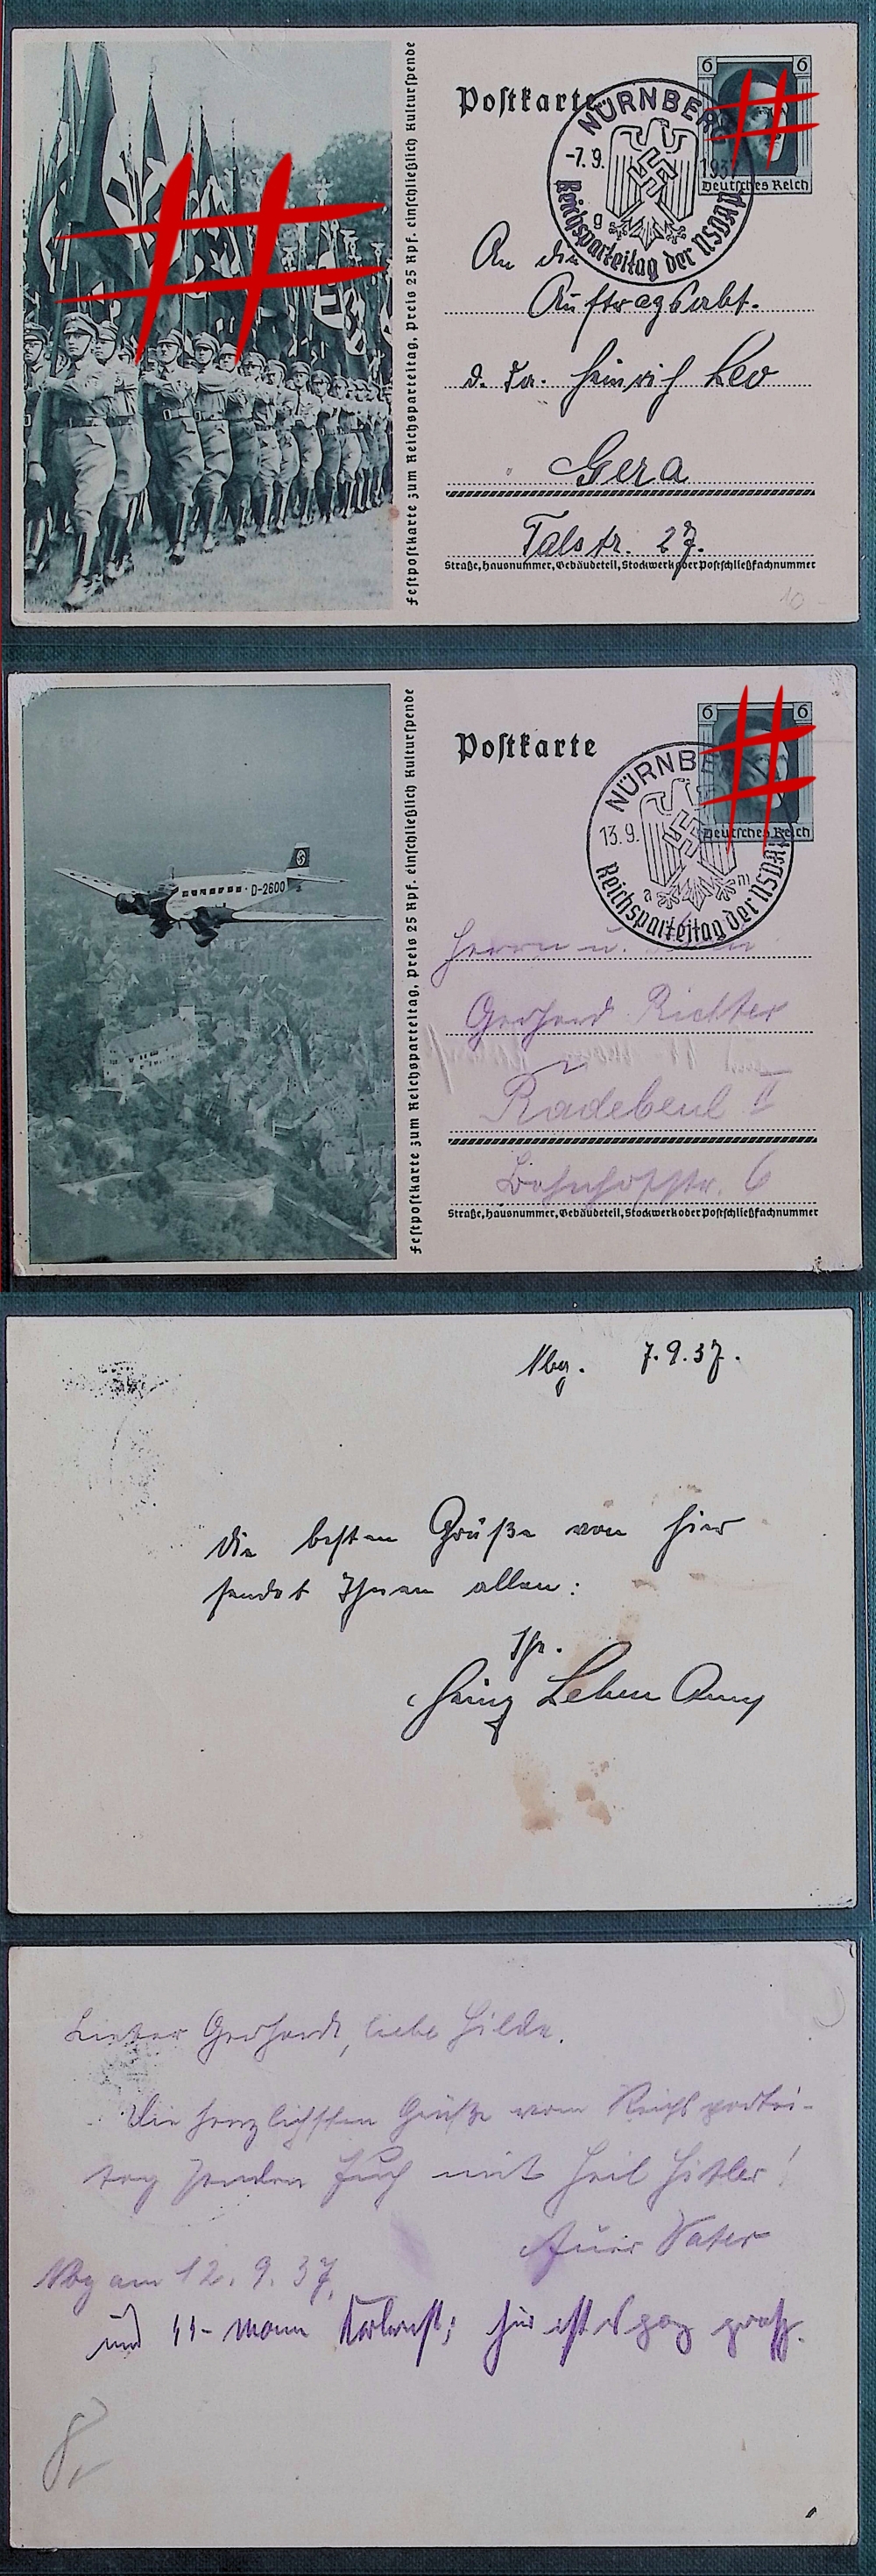 Festpostkarte zum Reichsparteitag, Preis 25 Rpf. einschließlich Kulturspende
Postkarte
6 6
Deutsches Reich
NÜRNBERG
-7. 9. 1937
g
Reichsparteitag der NSDAP
An die
Auftragsabt.
d. Fa. Heinrich Leo
Gera
Talstr. 27.
Straße, Hausnummer, Gebäudeteil, Stockwerk oder Postschließfachnummer
10 -
D-2600
Festpostkarte zum Reichsparteitag, Preis 25 Rpf. einschließlich Kulturspende
Postkarte
6 6
Deutsches Reich
NÜRNBE
13. 9.
a m
Reichsparteitag der NSDAP
Herrn u.
Gerhard Richter
Radebeul II
Bahnhofstr. 6
Straße, Hausnummer, Gebäudeteil, Stockwerk oder Postschließfachnummer
Nbg. 7.9.37.
Die besten Grüße von hier
sendet Ihnen allen:
Ihr.
Heinz
Lieber Gerhardt, liebe Hilde.
Die herzlichsten Grüße vom Reichspartei-
tag senden Euch mit Heil Hitler!
Euer Vater
Nbg am 12. 9. 37.
und SS-Mann hier ist